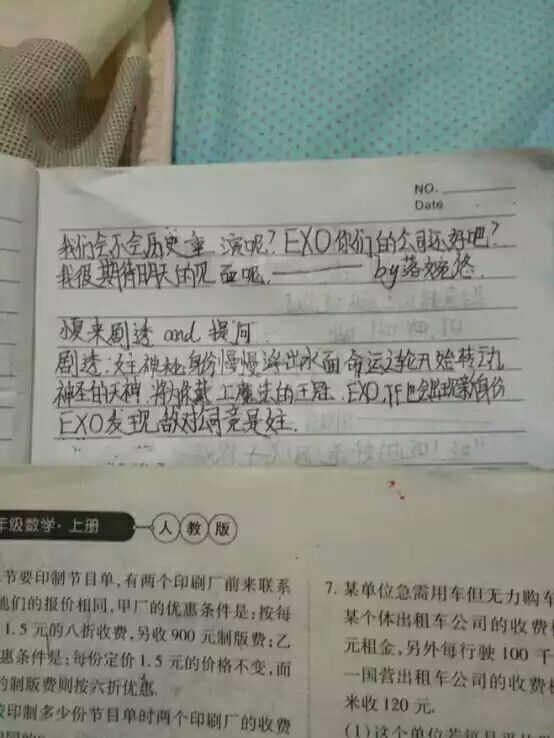 NO.
Date
我们会不会历史重演呢?EXO你们的公司还好吧?
我很期待明天的见面呢. by落婉悠.
慢来剧透 and 提问
剧透:女主神秘身份慢慢浮出水面 命运之轮开始转动
神圣的天神 将为你戴上魔法的王冠. EXO.TF也会出现新身份
EXO发现敌对公司竟是女主.
年级数学·上册
人教版
节要印制节目单,有两个印刷厂前来联系
他们的报价相同,甲厂的优惠条件是:按每
1.5元的八折收费,另收900元制版费;乙
惠条件是:每份定价1.5元的价格不变,而
的制版费则按六折优惠.
印制多少份节目单时两个印刷厂的收费
7.某单位急需用车但无力购车
某个体出租车公司的收费
元租金,另外每行驶100千
一国营出租车公司的收费
米收120元.
(1)这个单位若每月平均